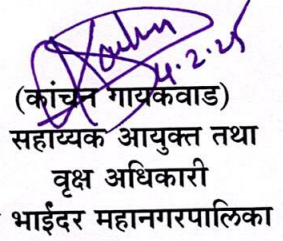 4.2.25
(कांचन गायकवाड)
सहाय्यक आयुक्त तथा
वृक्ष अधिकारी
भाईंदर महानगरपालिका